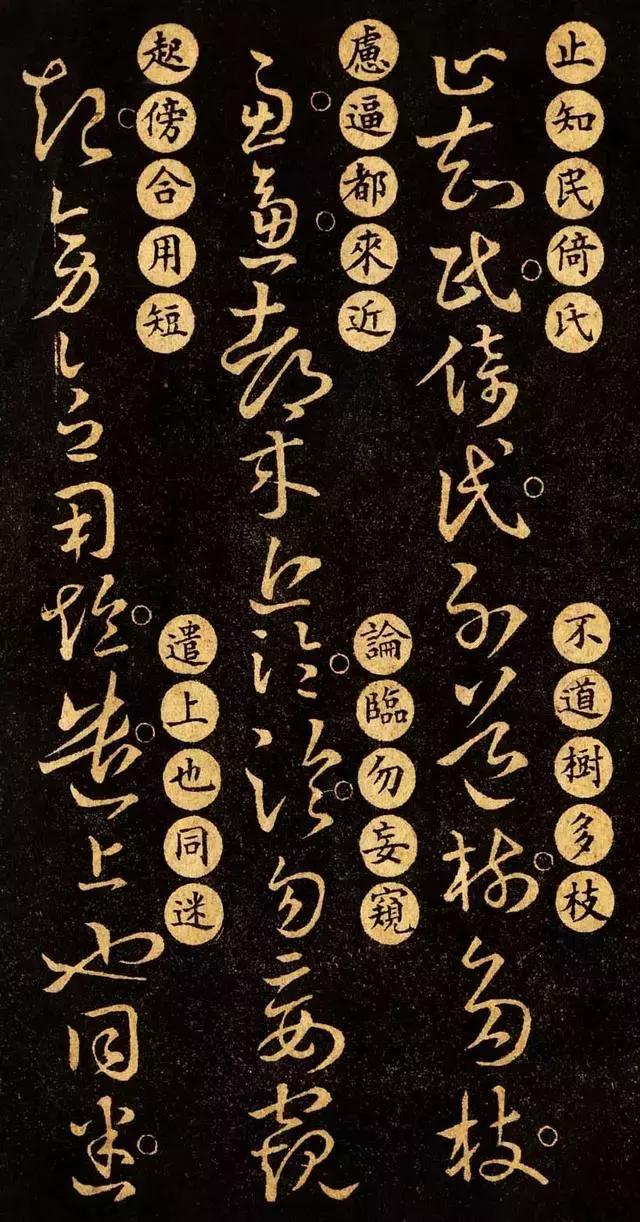 止知民倚氏
不道樹多枝
止知民倚氏不道樹多枝
慮逼都來近
論臨勿妄窺
慮逼都來近論臨勿妄窺
起傍合用短
遣上也同迷
起傍合用短遣上也同迷